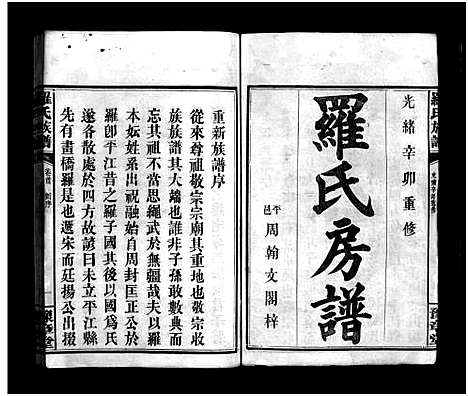 羅氏族譜
光緒辛卯重修
羅氏房譜
平邑周翰文閣梓
重新族譜序
從來尊祖敬宗宗廟其重地也敬宗收
族族譜其大端也誰非子孫敢數典而
忘其祖不當思繩武於無疆哉夫以羅
本妘姓系出祝融始自周封匡正公於
羅卽平江昔之羅子國其後以國為氏
遂各散處於四方故諺曰未立平江縣
先有畫橋羅是也遞宋而廷揚公出掇
羅氏族譜